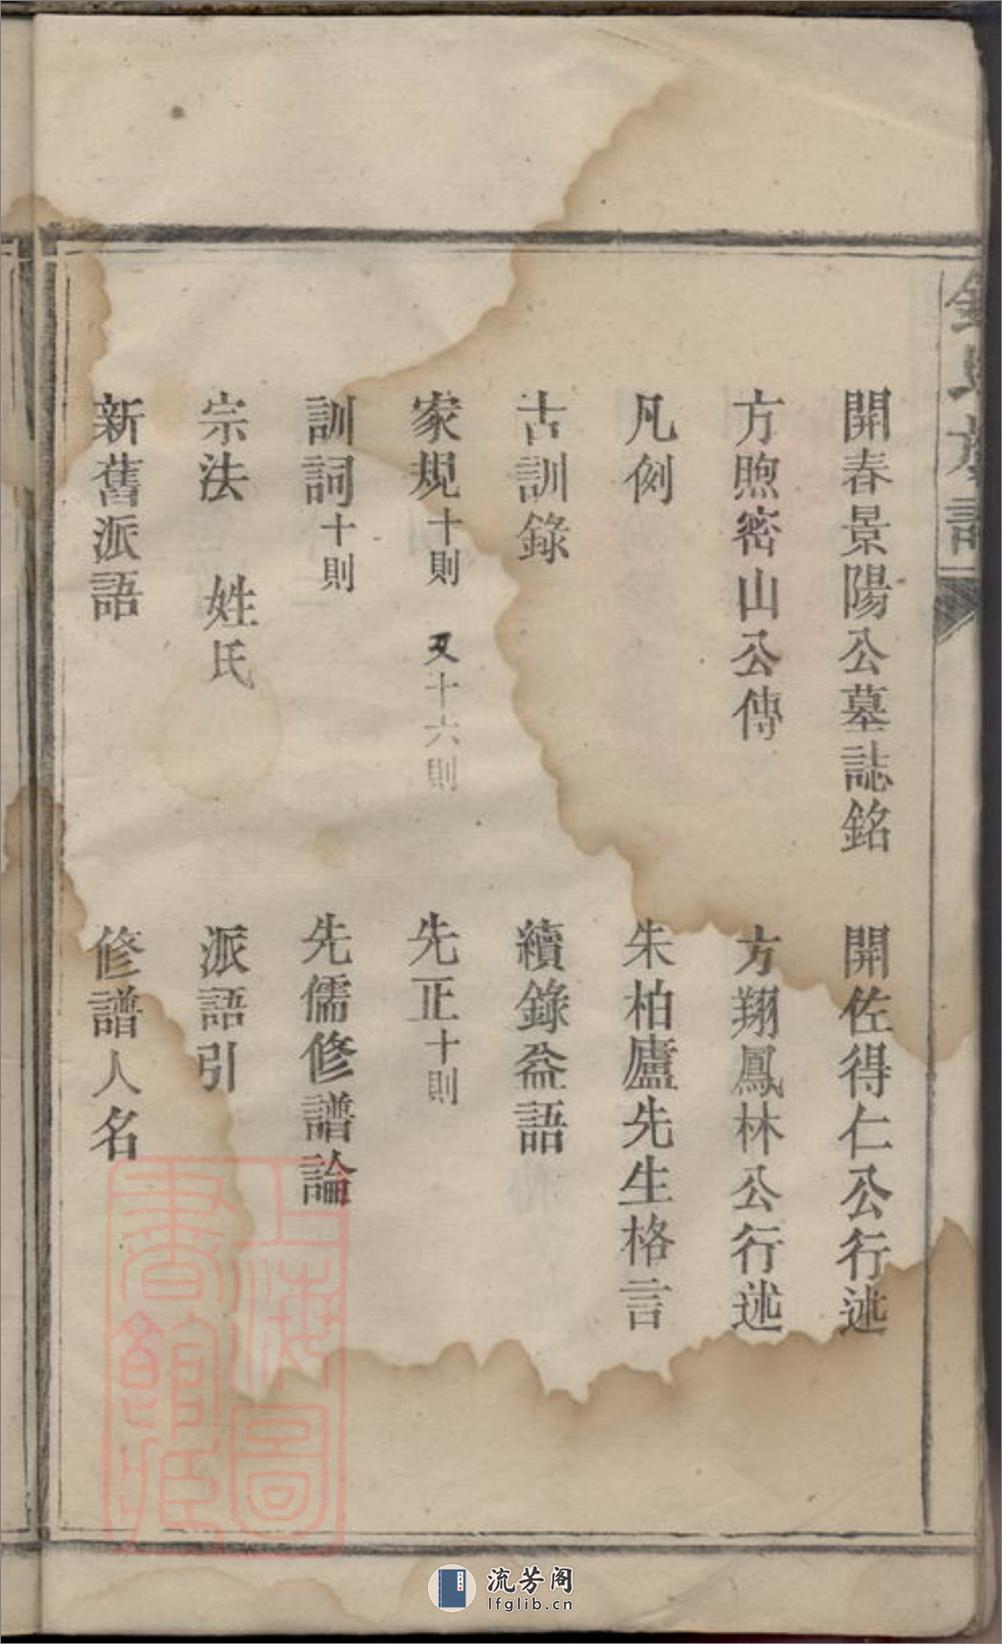 開春景陽公墓誌銘　開佐得仁公行述
方煦密山公傳　方翔鳳林公行述
凡例　朱柏廬先生格言
古訓錄　續錄益語
家規十則　又十六則　先正十則
訓詞十則　先儒修譜論
宗法　姓氏　派語引
新舊派語　修譜人名
上海圖書館藏
流芳阁
lfglib.cn